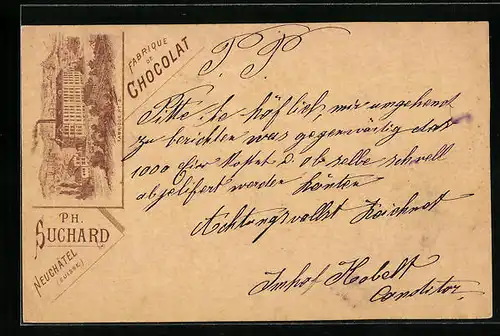 FABRIQUE
DE
CHOCOLAT
PH.
SUCHARD
NEUCHATEL
(SUISSE)
P. P.
Bitte Sie höflich, mir umgehend
zu berichten was gegenwärtig das
1000 Eier kostet & ob selbe schnell
abgeliefert werden könten
Achtungsvollst Zeichnet
Imhof
Conditor